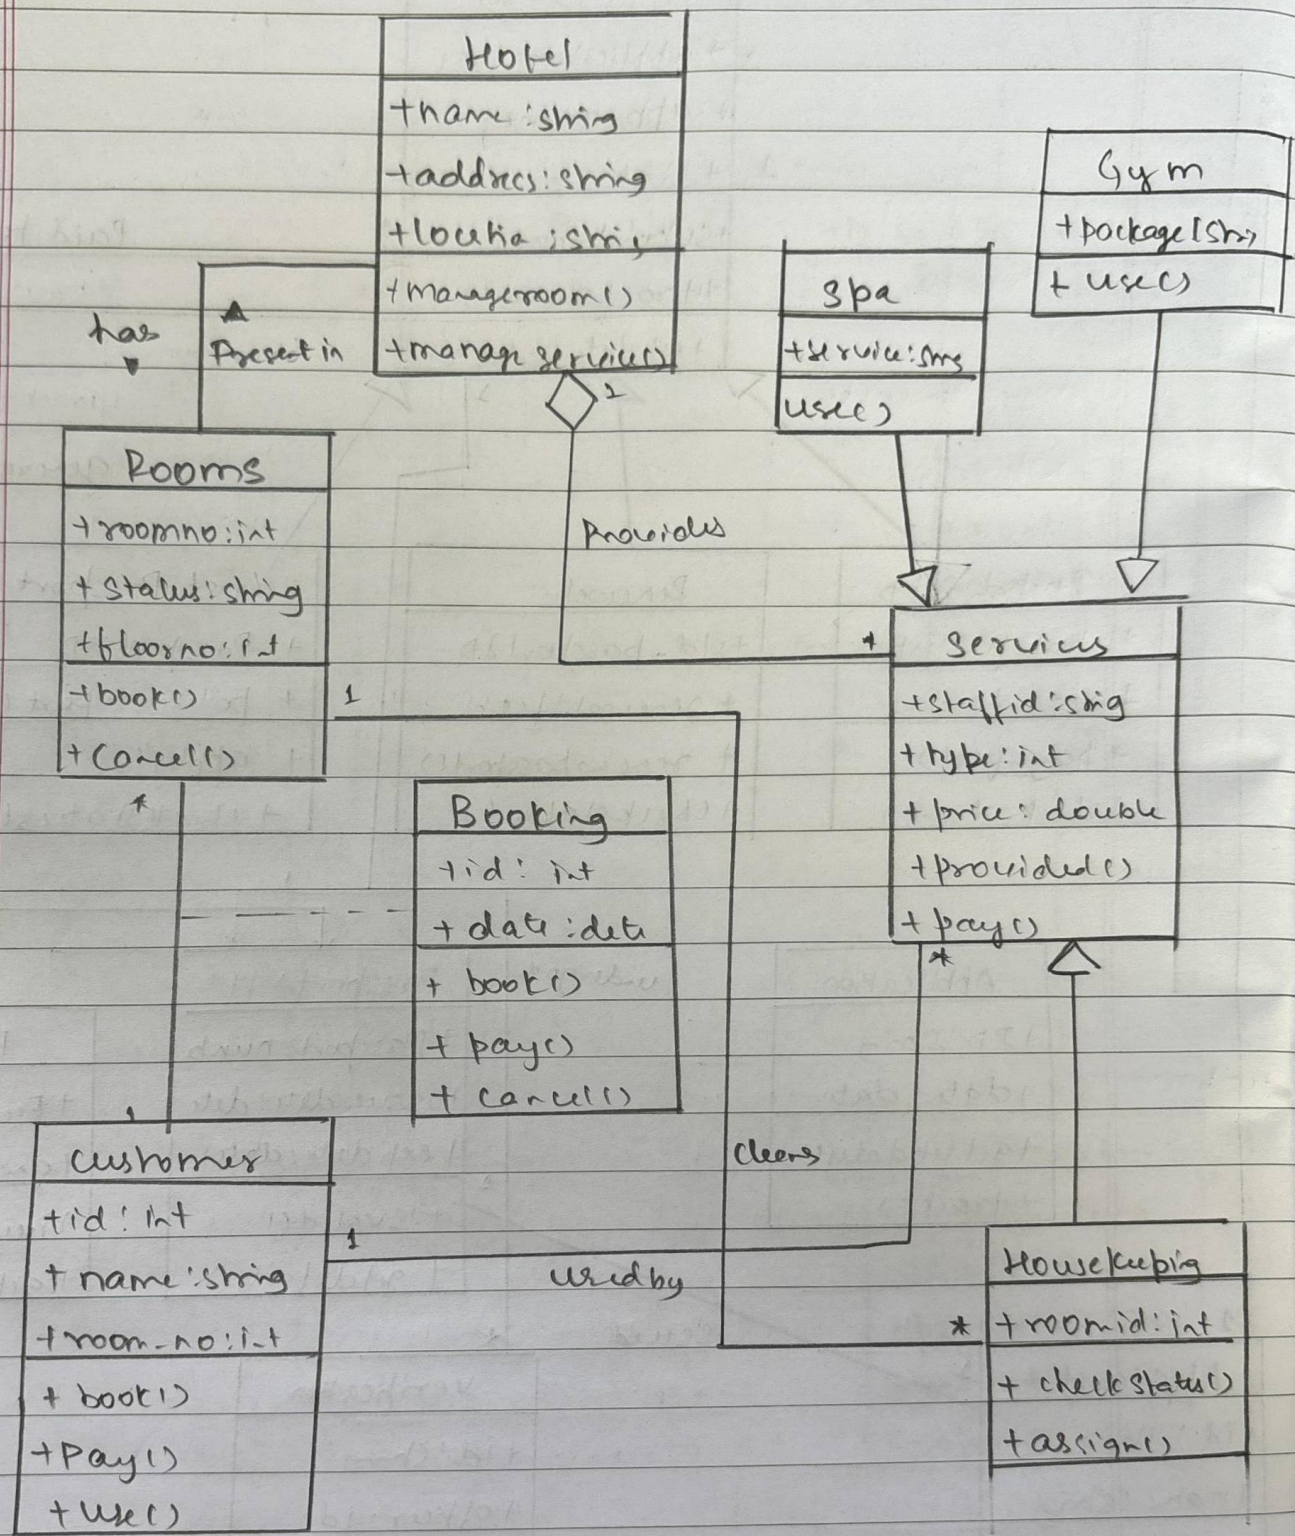 Hotel
+name : string
+address : string
+manageroom()
+manage services()
1
has
Present in
Gym
+ use()
Spa
use()
Rooms
+roomno : int
+ status : string
+floorno : int
+book()
+ Cancel()
*
1
Provides
*
Services
+staffid : string
+ type : int
+ price : double
+provided()
+ pay()
*
Booking
+id : int
+ date : date
+ book()
+ pay()
+ cancel()
1
customer
+id : int
+ name : string
+room_no : int
+ book()
+Pay()
+ use()
1
used by
Cleans
*
Housekeeping
+roomid : int
+ check status()
+assign()